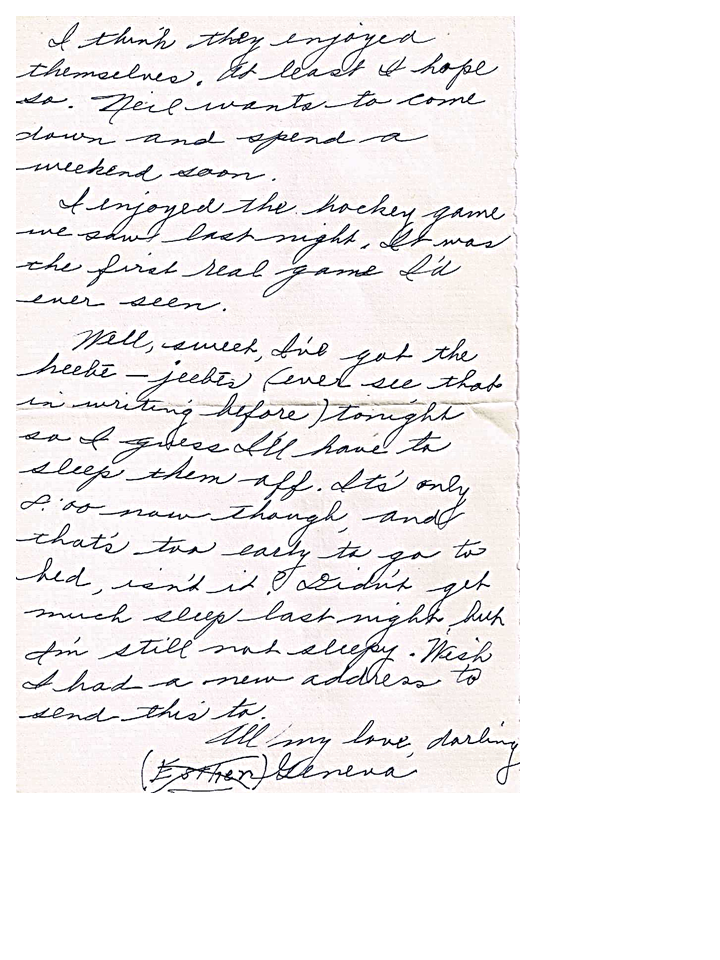 I think they enjoyed
themselves. At least I hope
so. Neil wants to come
down and spend a
weekend soon.
I enjoyed the hockey game
we saw last night. It was
the first real game I'd
ever seen.
Well, sweet, I've got the
heebe – jeebes (ever see that
in writing before) tonight
so I guess I'll have to
sleep them off. Its' only
8:00 now though, and
that's too early to go to
bed, isn't it? Didn't get
much sleep last night, but
I'm still not sleepy. Wish
I had a new address to
send this to.
All my love, darling,
(Esther) Geneva